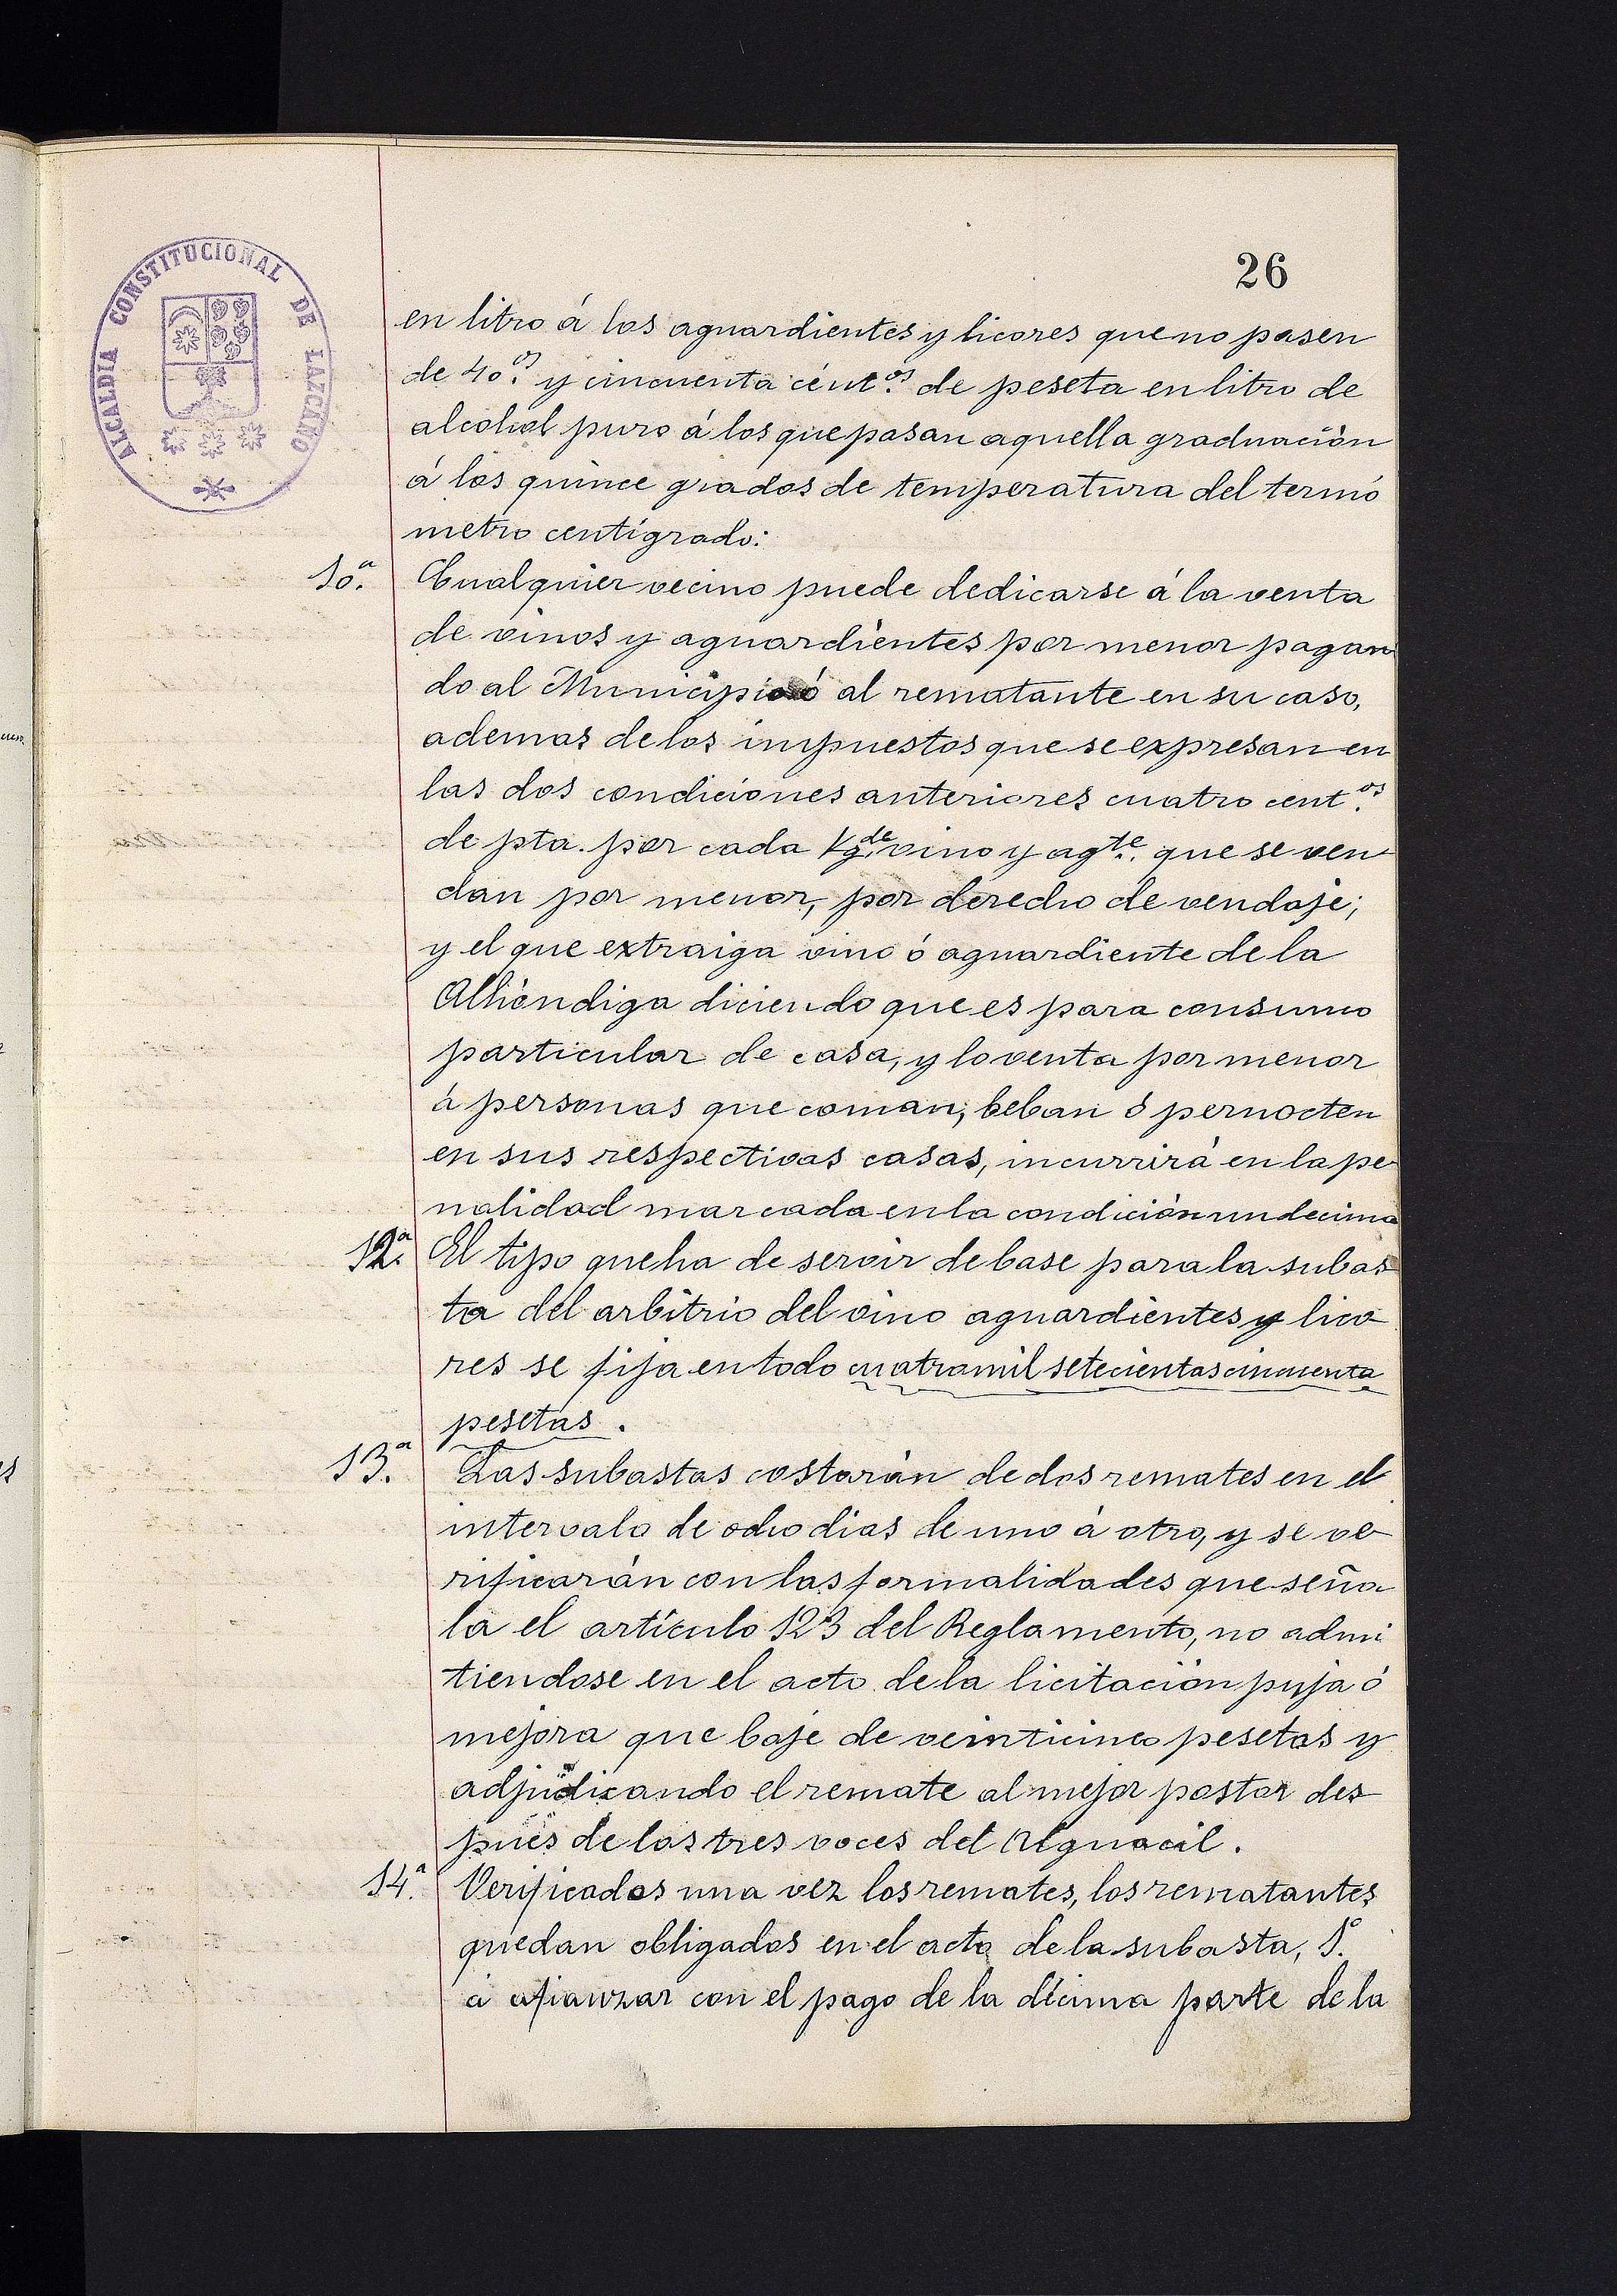 ALCALDIA CONSTITUCIONAL DE LAZCANO
26
en litro á los aguardientes y licores que no pasen
de 40.º y cincuenta cént.os de peseta en litro de
alcohol puro á los que pasan aquella graduación
á los quince grados de temperatura del termó
metro centígrado:
10.ª Cualquier vecino puede dedicarse á la venta
de vinos y aguardientes por menor pagan
do al Municipio ó al rematante en su caso,
ademas de los impuestos que se expresan en
las dos condiciones anteriores cuatro cent.os
de pta. por cada Kg. de vino y agte. que se ven
dan por menor, por derecho de vendaje;
y el que extraiga vino ó aguardiente de la
Alhóndiga diciendo que es para consumo
particular de casa, y lo venta por menor
á personas que coman, beban ó pernocten
en sus respectivas casas, incurrirá en la pe
nalidad marcada en la condición undecima
12.ª El tipo que ha de servir de base para la subas
ta del arbitrio del vino aguardientes y lico
res se fija en todo cuatro mil setecientas cincuenta
pesetas.
13.ª Las subastas costarán de dos remates en el
intervalo de ocho dias de uno á otro, y se ve
rificarán con las formalidades que seña
la el artículo 123 del Reglamento, no admi
tiendose en el acto de la licitación puja ó
mejora que baje de veinticinco pesetas y
adjudicando el remate al mejor postor des
pués de las tres voces del Alguacil.
14.ª Verificados una vez los remates, los rematantes
quedan obligados en el acto de la subasta, 1.º
á afianzar con el pago de la décima parte de la